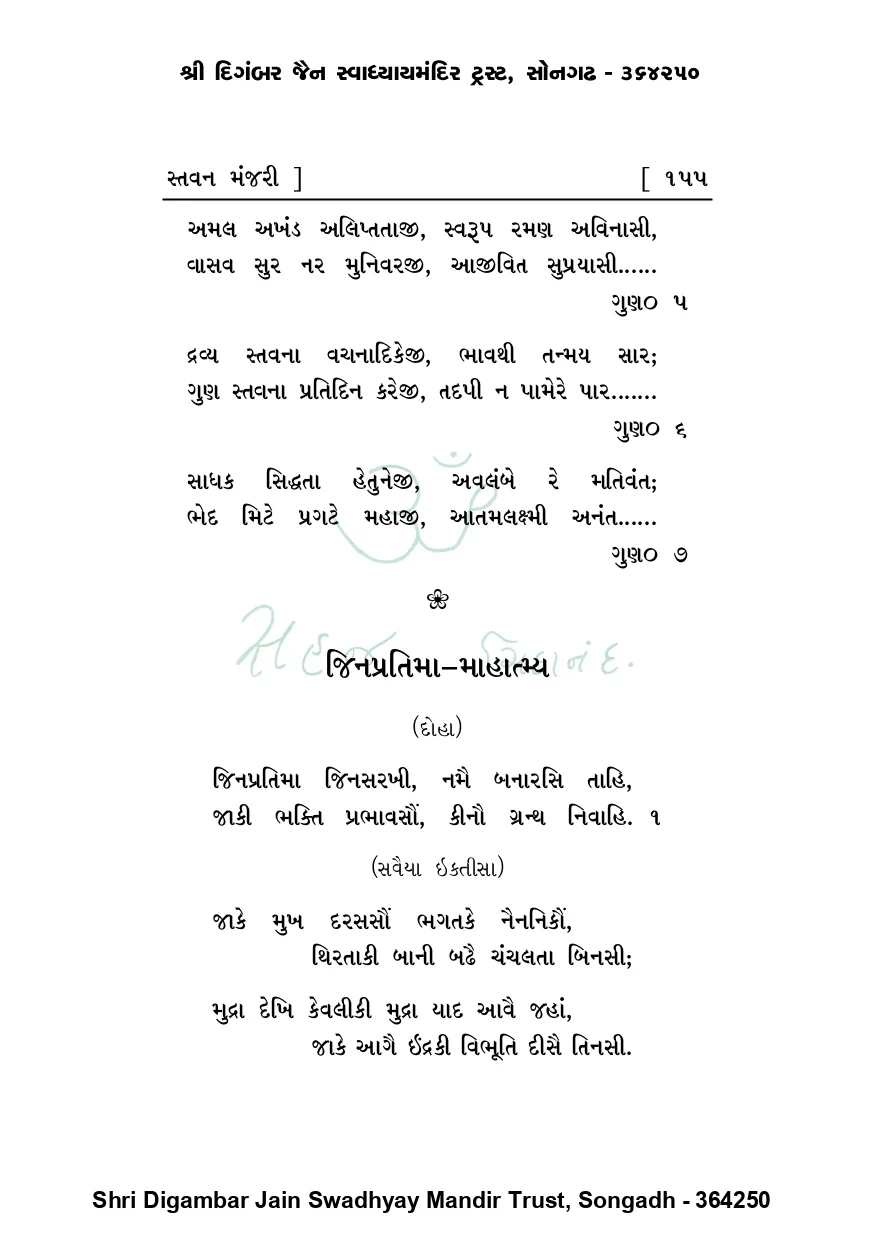 શ્રી દિગંબર જૈન સ્વાધ્યાયમંદિર ટ્રસ્ટ, સોનગઢ - ૩૬૪૨૫૦
સ્તવન મંજરી ] [ ૧૫૫
અમલ અખંડ અલિપ્તતાજી, સ્વરૂપ રમણ અવિનાસી,
વાસવ સુર નર મુનિવરજી, આજીવિત સુપ્રયાસી......
ગુણ૦ ૫
દ્રવ્ય સ્તવના વચનાદિકેજી, ભાવથી તન્મય સાર;
ગુણ સ્તવના પ્રતિદિન કરેજી, તદપી ન પામેરે પાર.......
ગુણ૦ ૬
સાધક સિદ્ધતા હેતુનેજી, અવલંબે રે મતિવંત;
ભેદ મિટે પ્રગટે મહાજી, આતમલક્ષ્મી અનંત......
ગુણ૦ ૭
સહજ ચિદાનંદ.
જિનપ્રતિમા–માહાત્મ્ય
(દોહા)
જિનપ્રતિમા જિનસરખી, નમૈ બનારસિ તાહિ,
જાકી ભક્તિ પ્રભાવસૌં, કીનૌ ગ્રન્થ નિવાહિ. ૧
(સવૈયા ઇકતીસા)
જાકે મુખ દરસસૌં ભગતકે નૈનનિકૌં,
થિરતાકી બાની બઢૈ ચંચલતા બિનસી;
મુદ્રા દેખિ કેવલીકી મુદ્રા યાદ આવૈ જહાં,
જાકે આગૈ ઈંદ્રકી વિભૂતિ દીસૈ તિનસી.
Shri Digambar Jain Swadhyay Mandir Trust, Songadh - 364250